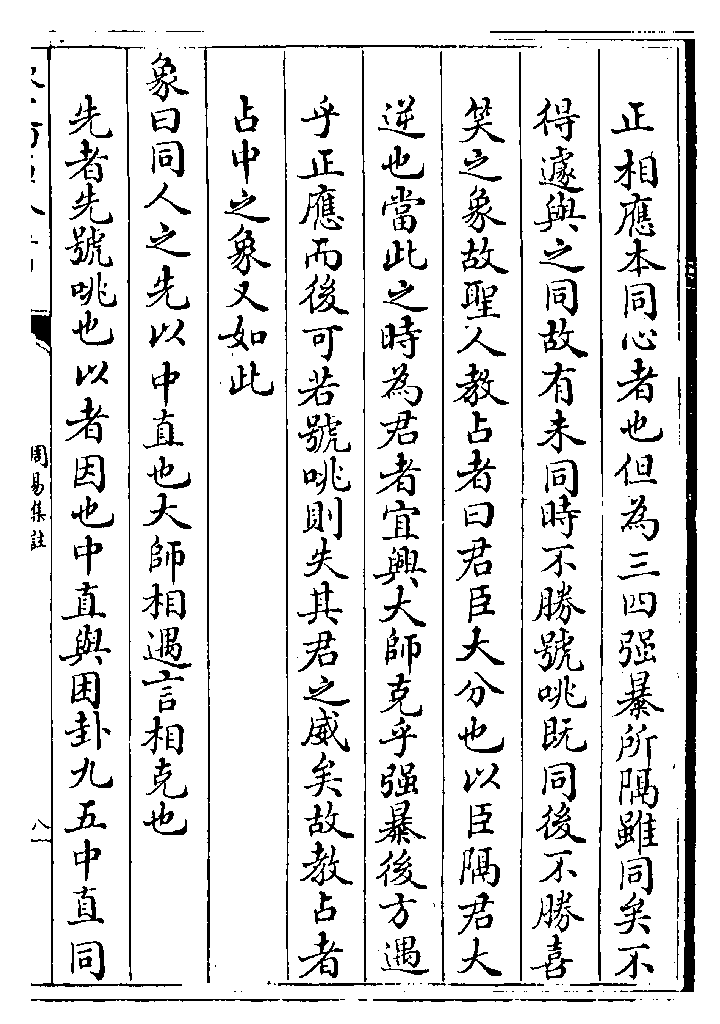 正相應本同心者也但為三四强暴所隔雖同矣不
得遽與之同故有未同時不勝號咷既同後不勝喜
笑之象故聖人教占者曰君臣大分也以臣隔君大
逆也當此之時為君者宜興大師克乎强暴後方遇
乎正應而後可若號咷則失其君之威矣故教占者
占中之象又如此
象曰同人之先以中直也大師相遇言相克也
先者先號咷也以者因也中直與困卦九五中直同
周易集註
八